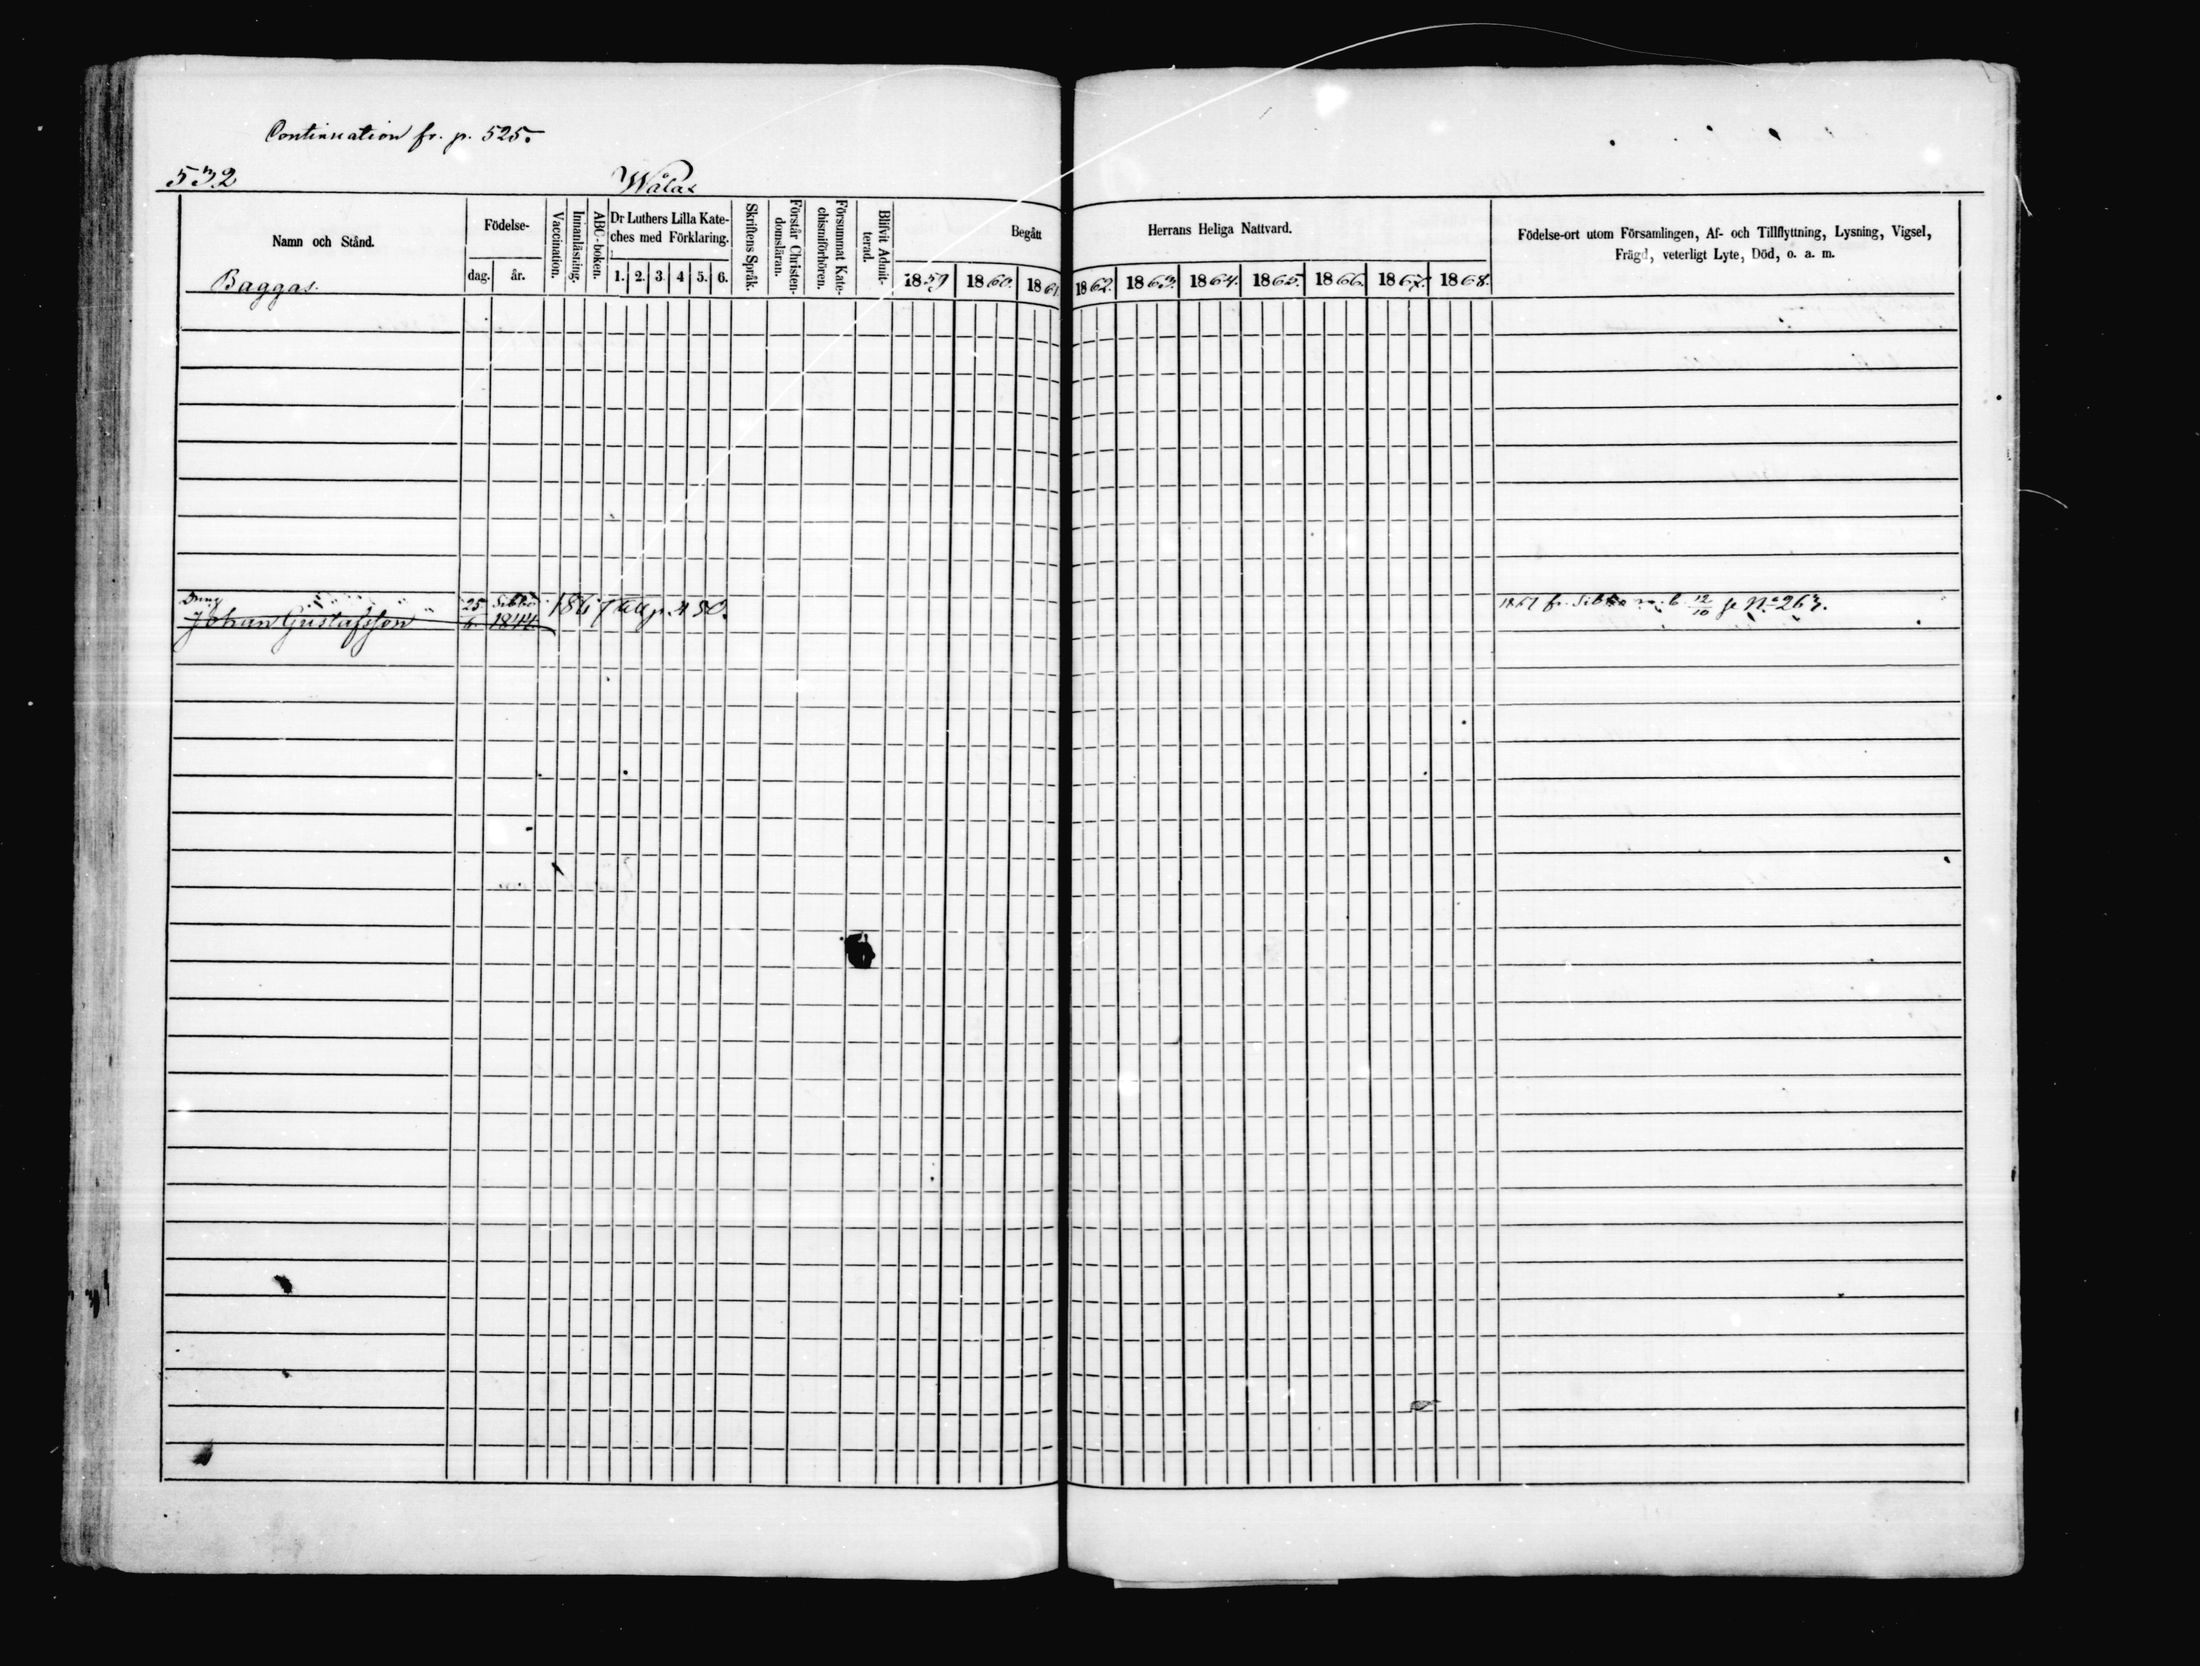 Continuation fr. p. 525.
532
Wålax
Namn och Stånd.
Baggas
Födelse-
dag.
år.
Vaccination.
Innanläsning.
ABC-boken.
Dr Luthers Lilla Kate-
ches med Förklaring.
1. 2. 3 4 5. 6.
Skriftens Språk.
Förstår Christen-
domsläran.
Försummat Kate-
chismiförhören.
Blifvit Admit-
terad.
Begått
Herrans Heliga Nattvard.
1859 1860. 1861. 1862. 1863. 1864. 1865. 1866. 1867. 1868.
Födelse-ort utom Församlingen, Af- och Tillflyttning, Lysning, Vigsel,
Frägd, veterligt Lyte, Död, o. a. m.
Dräng
Johan Gustafsson
25 Sibbo
6. 1844.
1867 till p. 480.
1867 fr. Sibbo m. b. 12/10 se No 267.